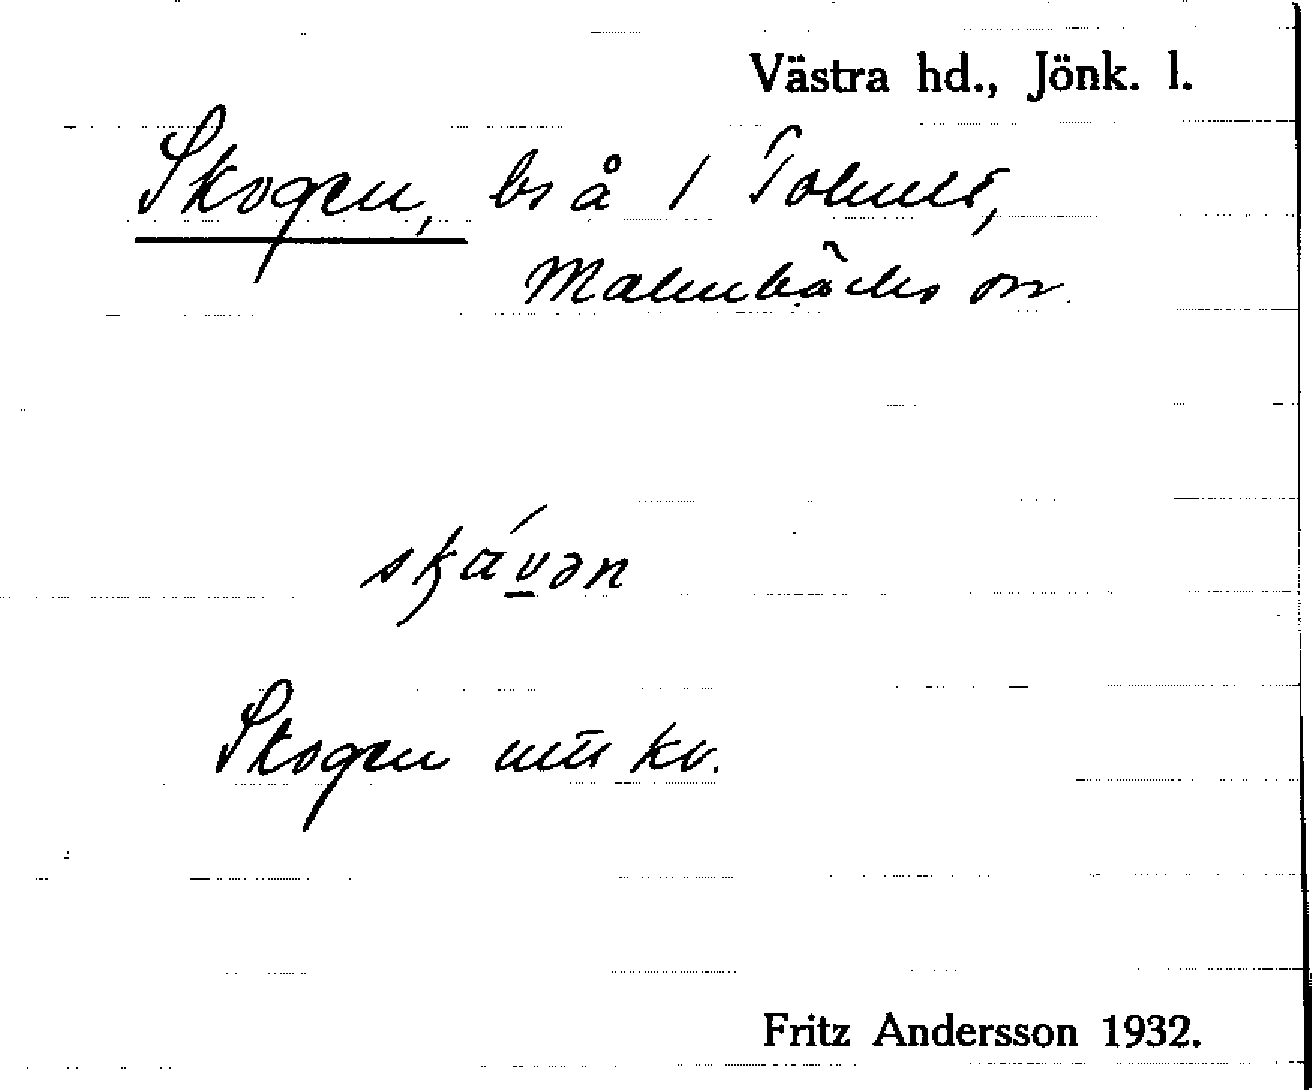 Västra hd., Jönk. l.
Skogen, bs å 1 Tohult,
Malmbäcks sn.
skávən
Skogen kv.
Fritz Andersson 1932.